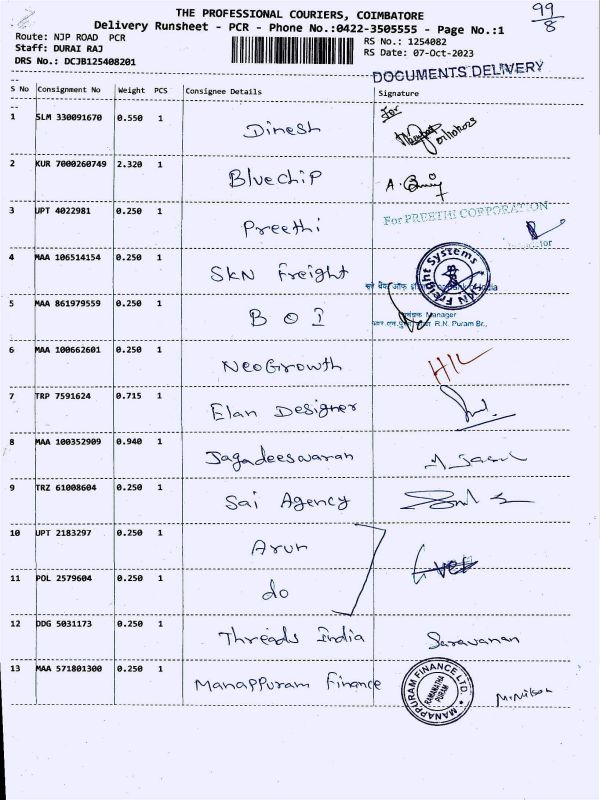 THE PROFESSIONAL COURIERS, COIMBATORE
99/8
Delivery Runsheet - PCR - Phone No.:0422-3505555 - Page No.:1
Route: NJP ROAD PCR
RS No.: 1254082
Staff: DURAI RAJ
RS Date: 07-Oct-2023
DRS No.: DCJB125408201
DOCUMENTS DELIVERY
S No Consignment No Weight PCS Consignee Details Signature
1 SLM 330091670 0.550 1 Dinesh For 07/10/2023
2 KUR 7000260749 2.320 1 Bluechip
3 UPT 4022981 0.250 1 Preethi For PREETHI CORPORATION
4 MAA 106514154 0.250 1 SKN Freight Freight Systems
5 MAA 861979559 0.250 1 BOI Manager
R.N. Puram Br.,
6 MAA 100662601 0.250 1 NeoGrowth
7 TRP 7591624 0.715 1 Elan Designer
8 MAA 100352909 0.940 1 Jagadeeswaran
9 TRZ 61008604 0.250 1 Sai Agency
10 UPT 2183297 0.250 1 Arun
11 POL 2579604 0.250 1 do
12 DDG 5031173 0.250 1 Threads India Saravanan
13 MAA 571801300 0.250 1 Manappuram Finance MANAPPURAM FINANCE LTD. RAMANATHA PURAM